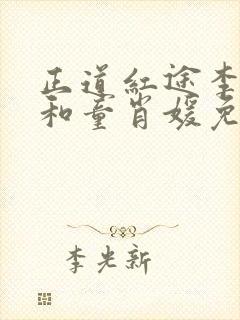 正道红途李
和童肖媛免
李光新